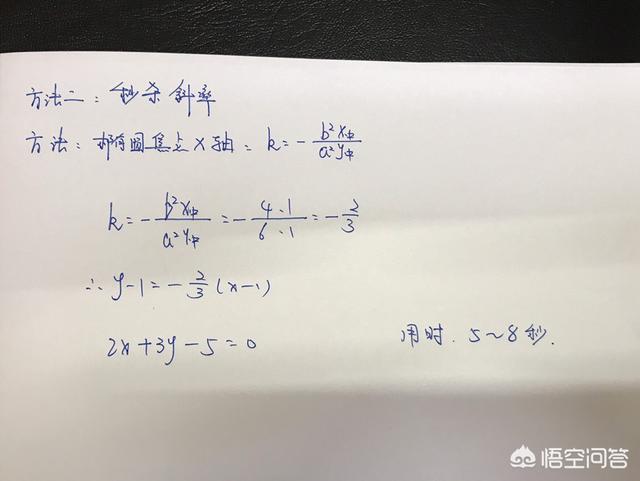 方法二：秒杀斜率
方法：椭圆焦点X轴：k=-b²x中/a²y中
k=-b²x中/a²y中=-4·1/6·1=-2/3
∴y-1=-2/3(x-1)
2x+3y-5=0
用时.5~8秒.
悟空问答